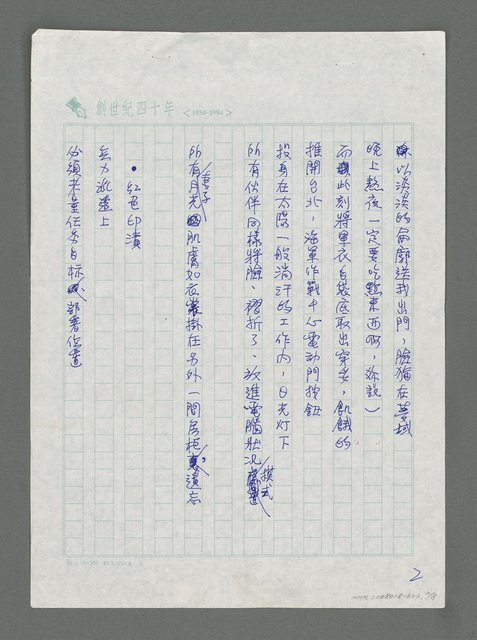 創世紀四十年 <1954-1994>
以淡淡的面廓送我出門，臉偏在
晚上熬夜一定要吃點東西啊，妳說）
而此刻將軍衣自袋底取出穿妥，飢餓的
推開台北，海軍作戰中心電動門按鈕
投身在太陽一般淌汗的工作內，日光灯下
所有伙伴同樣將臉、褶折了、放進電腦狀況模式
所有月光肌膚如衣裳掛在另外一間房柜，遺忘
妻子
•紅色印漬
無力飄墜上
必須考量任务目标、部署位置
2